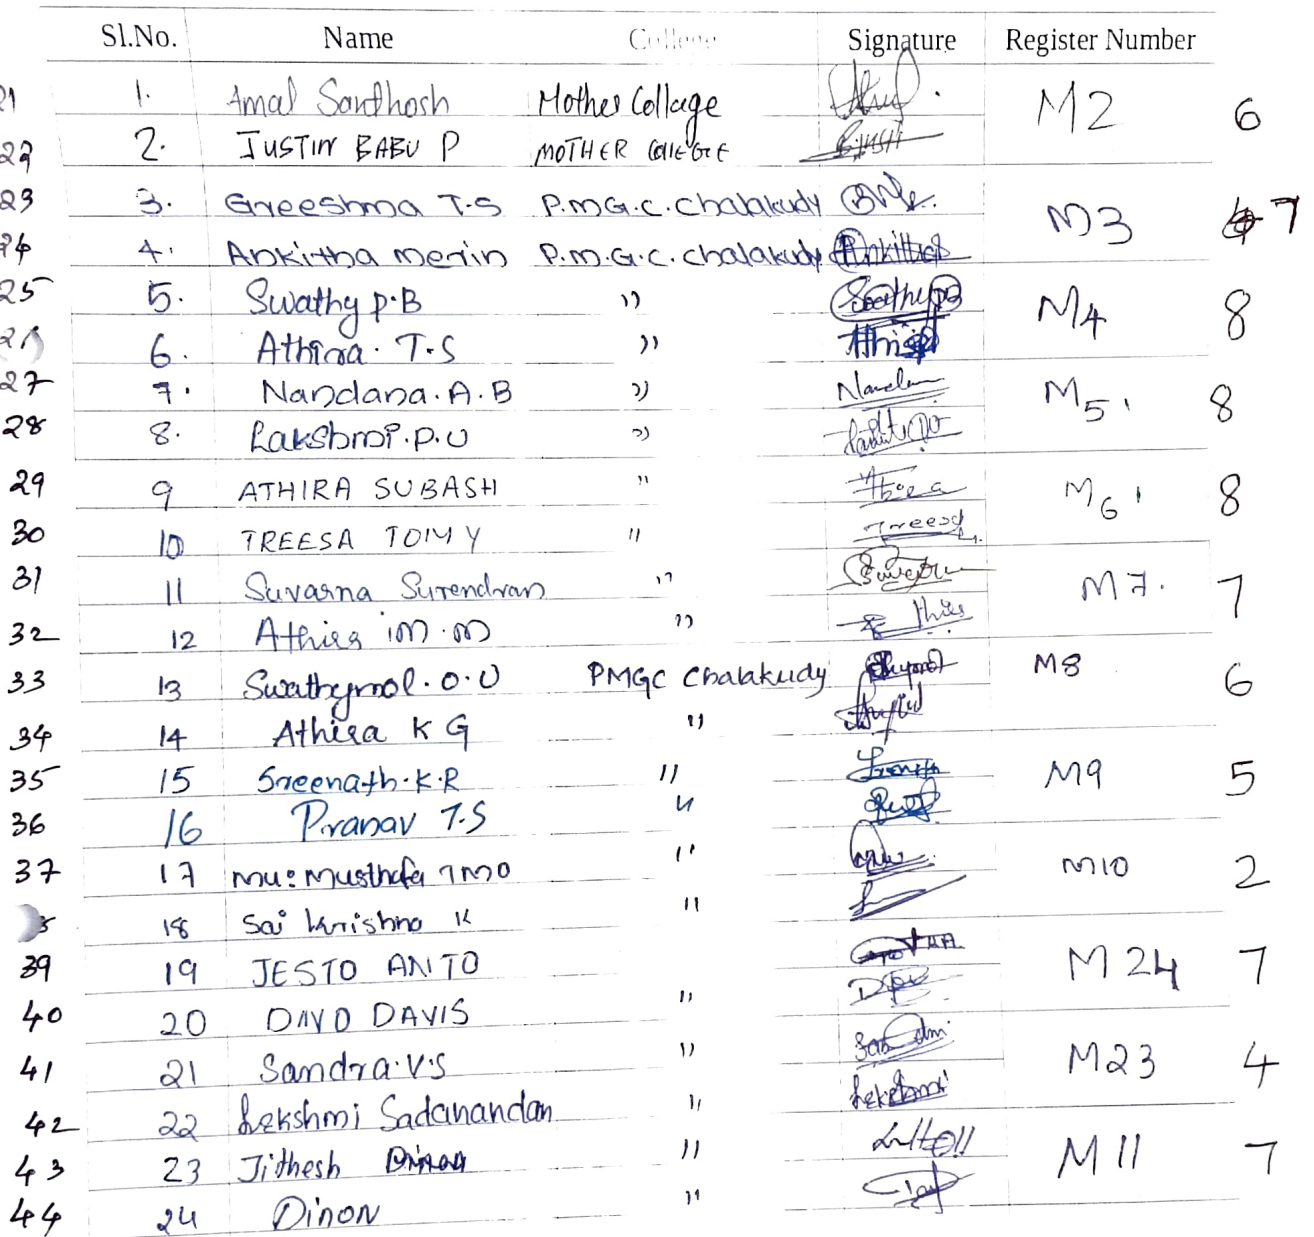 Sl.No. Name College Signature Register Number
21 1. Amal Santhosh Mother Collage M2 6
22 2. JUSTIN BABU P MOTHER COllEGE
23 3. Greeshma T.S P.M.G.C. Chalakudy M3 7
24 4. Ankitha merin P.M.G.C. chalakudy Ankitha
25 5. Swathy P.B " Swathy PB M4 8
6. Athira. T.S "
27 7. Nandana. A. B " M5. 8
28 8. Lakshmi. P. U "
29 9 ATHIRA SUBASH " M6 8
30 10 TREESA TOMY " Treesa
31 11 Suvarna Surendran " M7. 7
32 12 Athira M.M "
33 13 Swathymol. O. U PMGC Chalakudy M8 6
34 14 Athira K G "
35 15 Sreenath. K. R " M9 5
36 16 Pranav T.S "
37 17 mu: Musthafa "  M10 2
18 Sai Krishna K "
39 19 JESTO ANTO M 24 7
40 20 DAVID DAVIS "
41 21 Sandra. V.S " M23 4
42 22 Lekshmi Sadanandan " Lekshmi
43 23 Jithesh " M 11 7
44 24 Dinon "